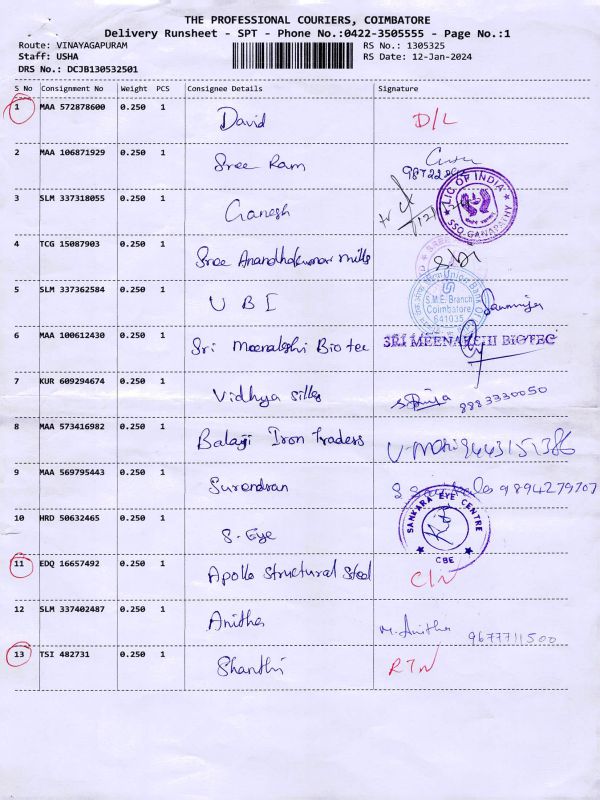 THE PROFESSIONAL COURIERS, COIMBATORE
Delivery Runsheet - SPT - Phone No.:0422-3505555 - Page No.:1
Route: VINAYAGAPURAM RS No.: 1305325
Staff: USHA RS Date: 12-Jan-2024
DRS No.: DCJB130532501
S No Consignment No Weight PCS Consignee Details Signature
1 MAA 572878600 0.250 1 David D/L
2 MAA 106871929 0.250 1 Sree Ram
3 SLM 337318055 0.250 1 Ganesh
LIC OF INDIA
SSO GANAPATHY
4 TCG 15087903 0.250 1 Sree Anandhakumar mills
5 SLM 337362584 0.250 1 U B I
Union Bank
S.M.E. Branch
Coimbatore
641035
6 MAA 100612430 0.250 1 Sri Meenakshi Bio tec SRI MEENAKSHI BIOTEC
7 KUR 609294674 0.250 1 Vidhya silks 8883330050
8 MAA 573416982 0.250 1 Balaji Iron Traders V. mani 9443151386
9 MAA 569795443 0.250 1 Surendran 9894279707
10 HRD 50632465 0.250 1 S. Eye
SANKARA EYE CENTRE
CBE
11 EDQ 16657492 0.250 1 Apollo Structural Steel C/N
12 SLM 337402487 0.250 1 Anitha M. Anitha 9677711500
13 TSI 482731 0.250 1 Shanthi RTN